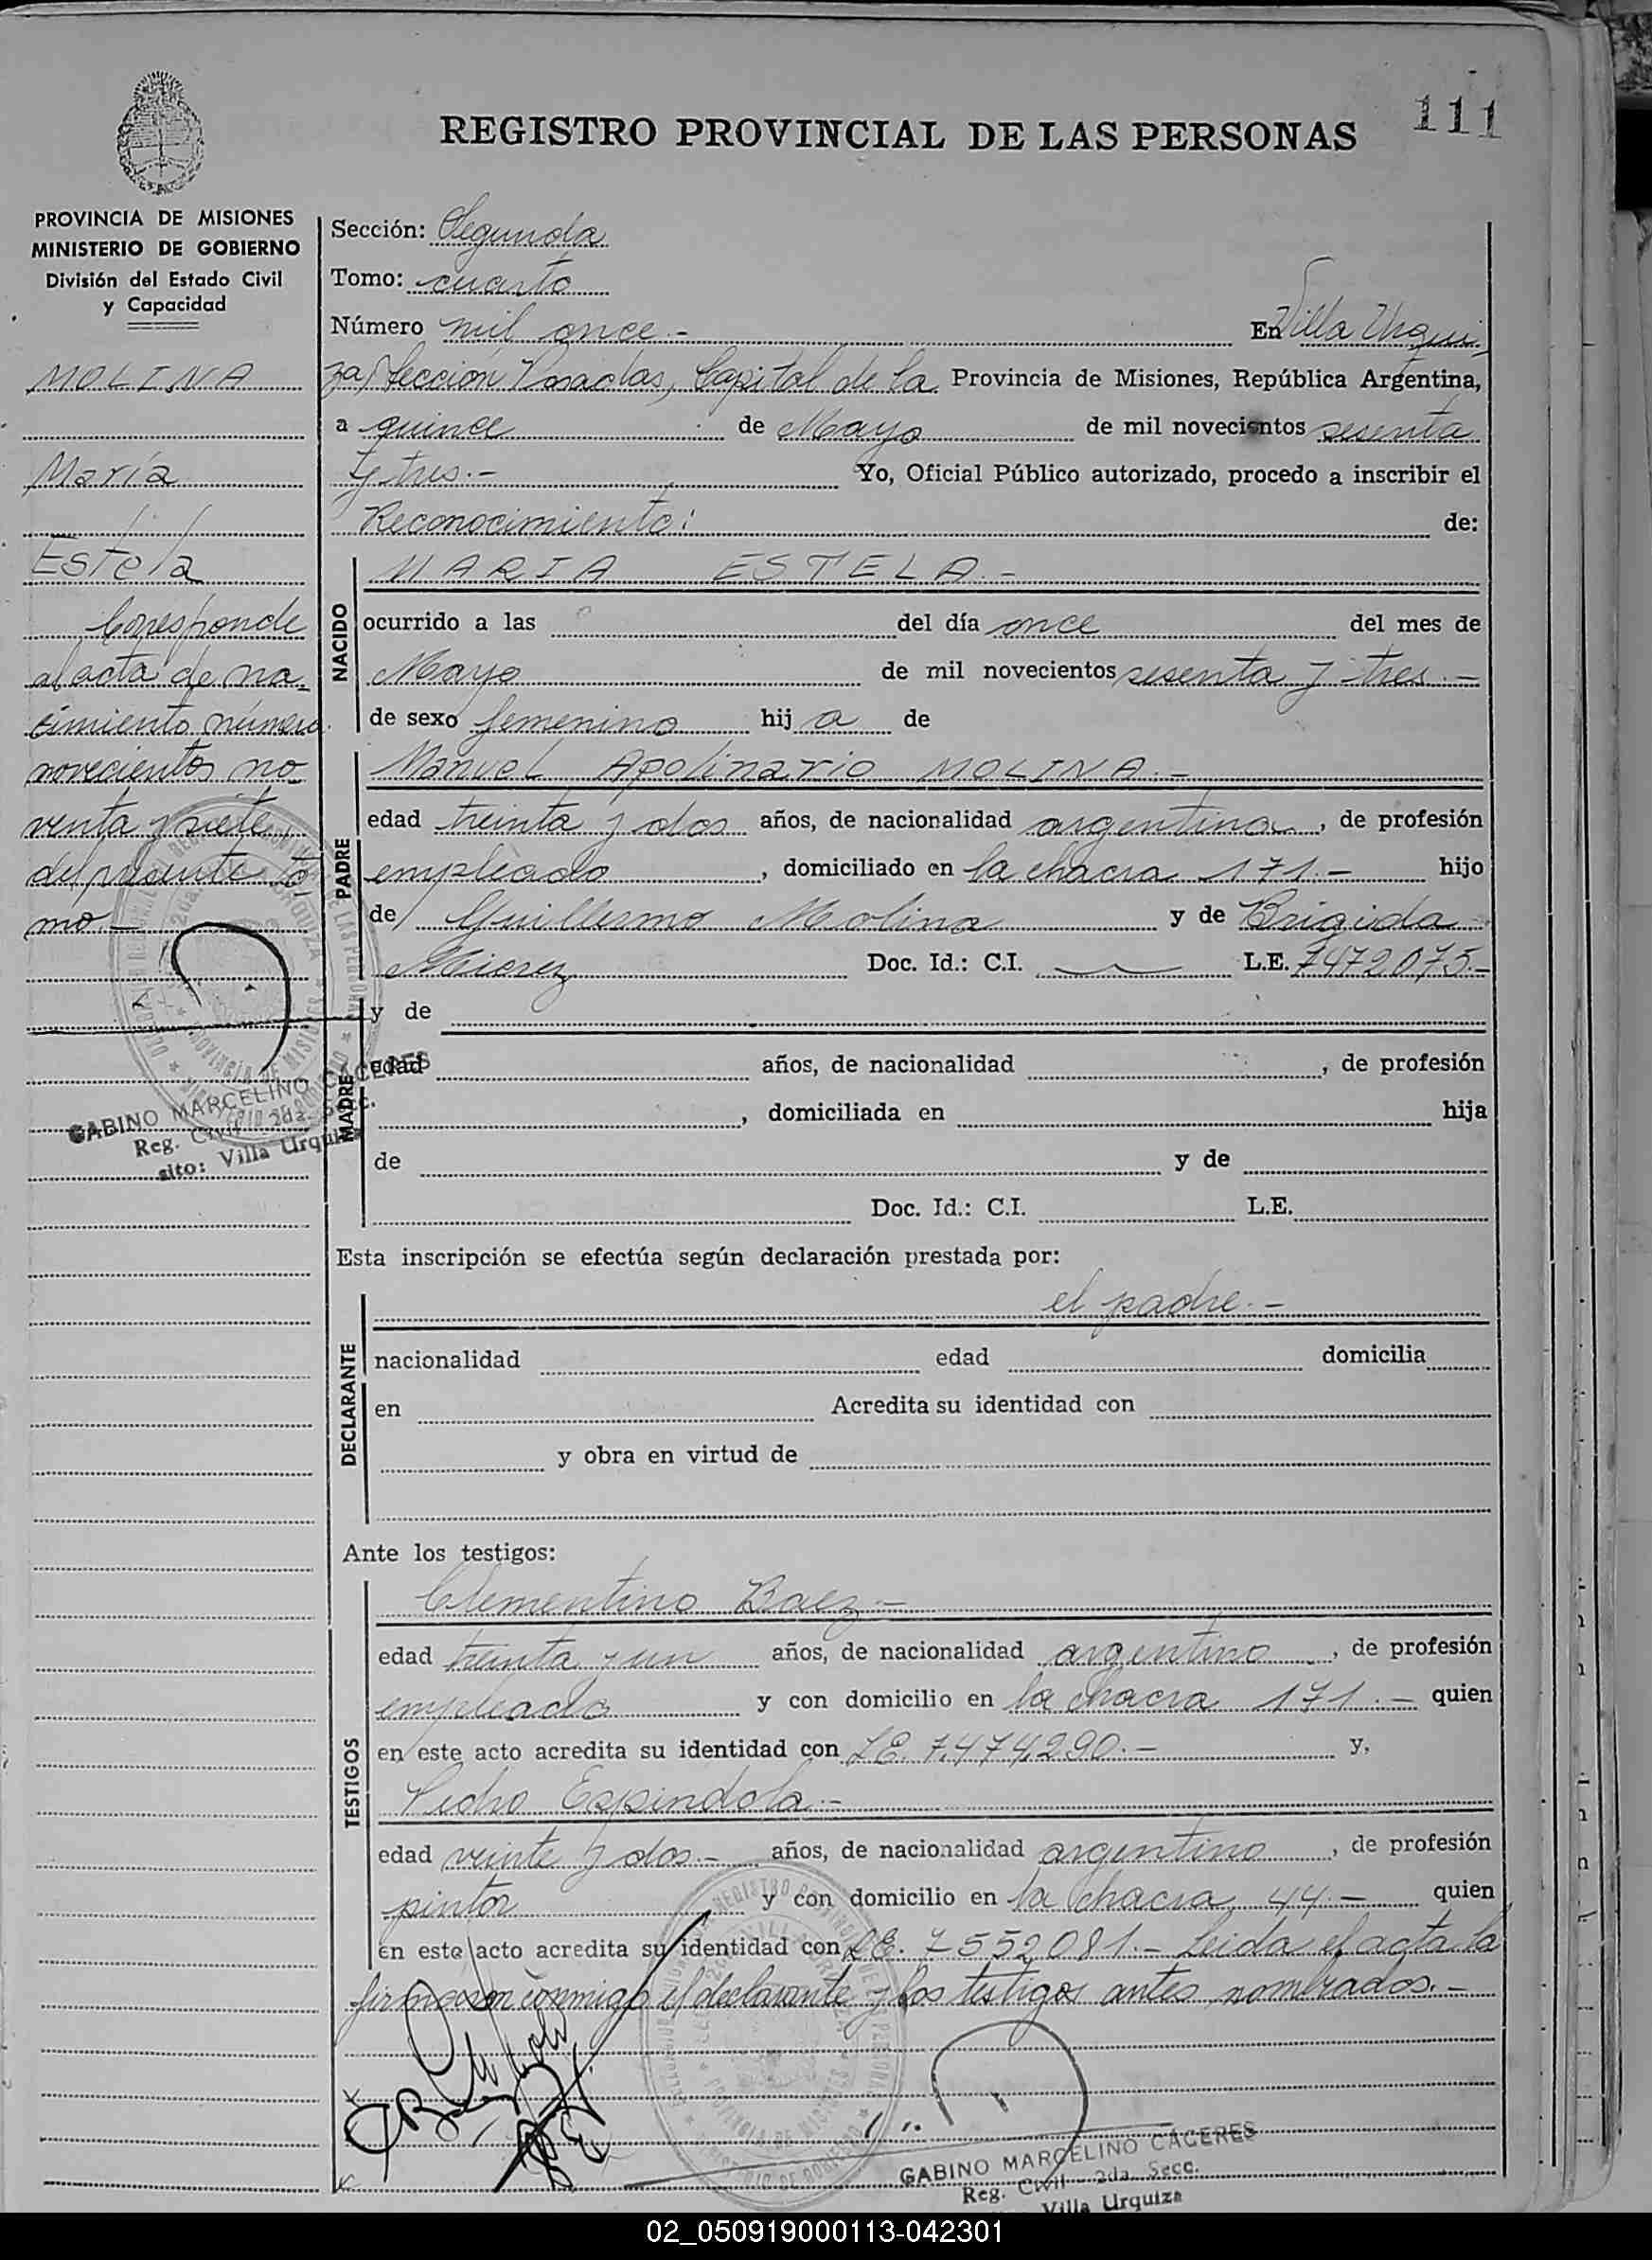 111
REGISTRO PROVINCIAL DE LAS PERSONAS
PROVINCIA DE MISIONES
MINISTERIO DE GOBIERNO
División del Estado Civil
y Capacidad
MOLINA
María
Estela
Corresponde
al acta de na-
cimiento número
novecientos no-
venta y siete,
del presente to-
mo.-
GABINO MARCELINO CACERES
Reg. Civil 2da. Secc.
sito: Villa Urquiza
Sección: Segunda
Tomo: cuarto
Número mil once.- En Villa Urqui-
za, Sección Posadas, Capital de la Provincia de Misiones, República Argentina,
a quince de Mayo de mil novecientos sesenta
y tres.- Yo, Oficial Público autorizado, procedo a inscribir el
Reconocimiento: de:
NACIDO
MARIA ESTELA.-
ocurrido a las del día once del mes de
Mayo de mil novecientos sesenta y tres.-
de sexo femenino hij a de
PADRE
Manuel Apolinario MOLINA.-
edad treinta y dos años, de nacionalidad argentina, de profesión
empleado, domiciliado en la chacra 171.- hijo
de Guillermo Molina y de Brigida
Doc. Id.: C.I. L.E. 7472075.-
MADRE
y de
edad años, de nacionalidad , de profesión
, domiciliada en hija
de y de
Doc. Id.: C.I. L.E.
Esta inscripción se efectúa según declaración prestada por:
DECLARANTE
el padre.-
nacionalidad edad domicilia
en Acredita su identidad con
y obra en virtud de
Ante los testigos:
TESTIGOS
Clementino Baez.-
edad treinta y un años, de nacionalidad argentino, de profesión
empleado y con domicilio en la chacra 171.- quien
en este acto acredita su identidad con LE. 7.474.290.- y,
Pedro Espindola.-
edad veinte y dos.- años, de nacionalidad argentino, de profesión
pintor y con domicilio en la chacra 44.- quien
en este acto acredita su identidad con LE. 7552081.- Leida el acta la
firmaron conmigo el declarante y los testigos antes nombrados.-
GABINO MARCELINO CACERES
Reg. Civil - 2da. Secc.
Villa Urquiza
02_050919000113-042301